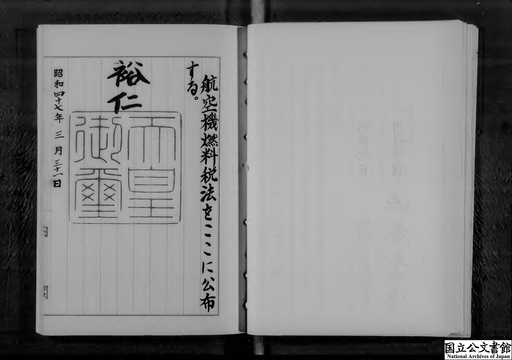 航空機燃料税法をここに公布
する。
裕仁
天皇
御璽
昭和四十七年三月三十一日
国立公文書館
National Archives of Japan